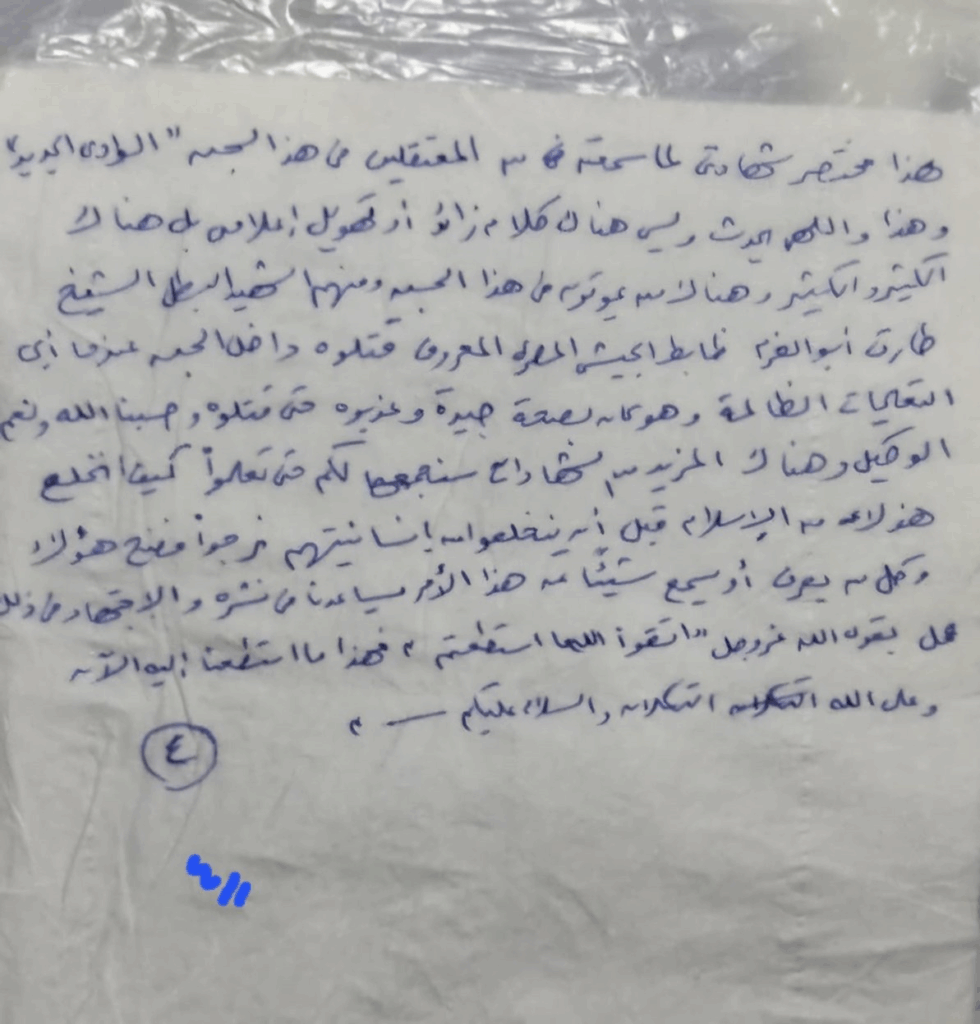 هذا مختصر شهادتى لما سمعته من المعتقلين فى هذا السجن "الوادى الجديد"
وهذا والله يحدث وليس هناك كلام زائد أو تهويل إعلامى بل هناك
الكثير والكثير وهناك من يموتون فى هذا السجن ومنهم الشهيد البطل الشيخ
طارق أبو العزم ظابط الجيش المصرى المعروف قتلوه داخل السجن عندما أبى
التعليمات الظالمة وهو كان بصحة جيدة وعذبوه حتى قتلوه وحسبنا الله ونعم
الوكيل وهناك المزيد من الشهادات سنجمعها لكم حتى تعلموا كيف انخلع
هؤلاء من الإسلام قبل أن ينخلعوا من إنسانيتهم نرجوا فضح هؤلاء
وكل من يعرف أو يسمع شيئًا عن هذا الأمر يساعدنا فى نشره والاجتهاد فى ذلك
يقول الله عز وجل "اتقوا الله ما استطعتم" فهذا ما استطعنا إليه الآن
وعلى الله التكلان والسلام عليكم
٤